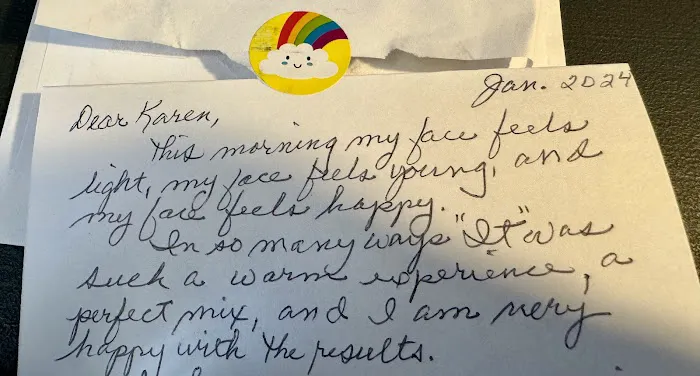 Jan. 2024
Dear Karen,
This morning my face feels
light, my face feels young, and
my face feels happy.
In so many ways "It" was
such a warm experience, a
perfect mix, and I am very
happy with the results.